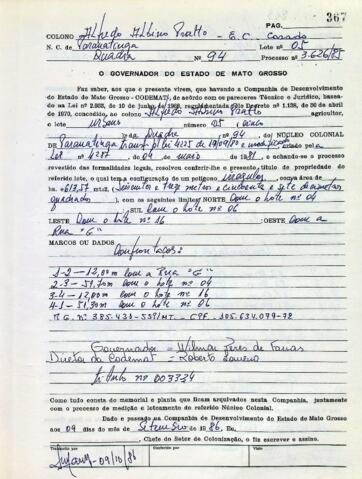 PAG. 367
COLONO Alfredo Albino Pratto - E.C. Casado
N. C. de Paranatinga Lote nº 05
Quadra Nº 94 Processo nº 3.626/85
O GOVERNADOR DO ESTADO DE MATO GROSSO
Faz saber, aos que a presente virem, que havendo a Companhia de Desenvolvimento
do Estado de Mato Grosso - CODEMAT, de acordo com os pareceres Técnico e Jurídico, baseado
na Lei nº 2.935, de 10 de junho de 1969, regulamentada pelo Decreto nº 1.138, de 30 de abril
de 1970, concedido, ao colono Alfredo Albino Pratto agricultor,
o lote urbano número 05 cinco
na Quadra nº 94, do NÚCLEO COLONIAL
DE Paranatinga transf. p/ lei 4125 de 19/09/80 e modificado criado pelo
Lei nº 4287 de 04 de maio de 1981, e achando-se o processo
revestido das formalidades legais, resolveu conferir-lhe o presente, título de propriedade do
referido lote, o qual tem a configuração de um polígono irregular, com a área de
613,57 mt2. (seiscentos e treze metros e cincoenta e sete decimetros
quadrados), com os seguintes limites: NORTE Com o lote nº 04
SUL Com o lote nº 06
LESTE Com o lote nº 16 :OESTE Com a
Rua "G"
MARCOS OU DADOS
Confrontações:
1-2 - 12,00m com a Rua "G"
2-3 - 51,70m com o lote nº 04
3-4 - 12,00m com o lote nº 16
4-1 - 51,30m com o lote nº 06
R.G. nº 385.431-SSP/MT. - CPF. 105.634.079-72
Governador = Wilmar Peres de Farias
Diretor da Codemat = Roberto Loureiro
Titulo nº 003334
Como tudo consta do memorial e planta que ficam arquivados nesta Companhia, juntamente
com o processo de medição e loteamento do referido Núcleo Colonial.
Dado e passado na Companhia de Desenvolvimento do Estado de Mato Grosso
aos 09 dias do mês de Setembro de 1986. Eu,
, Chefe do Setor de Colonização, o fiz escrever e assino.
Transcrito por
Conferido por
Visto
09/10/86